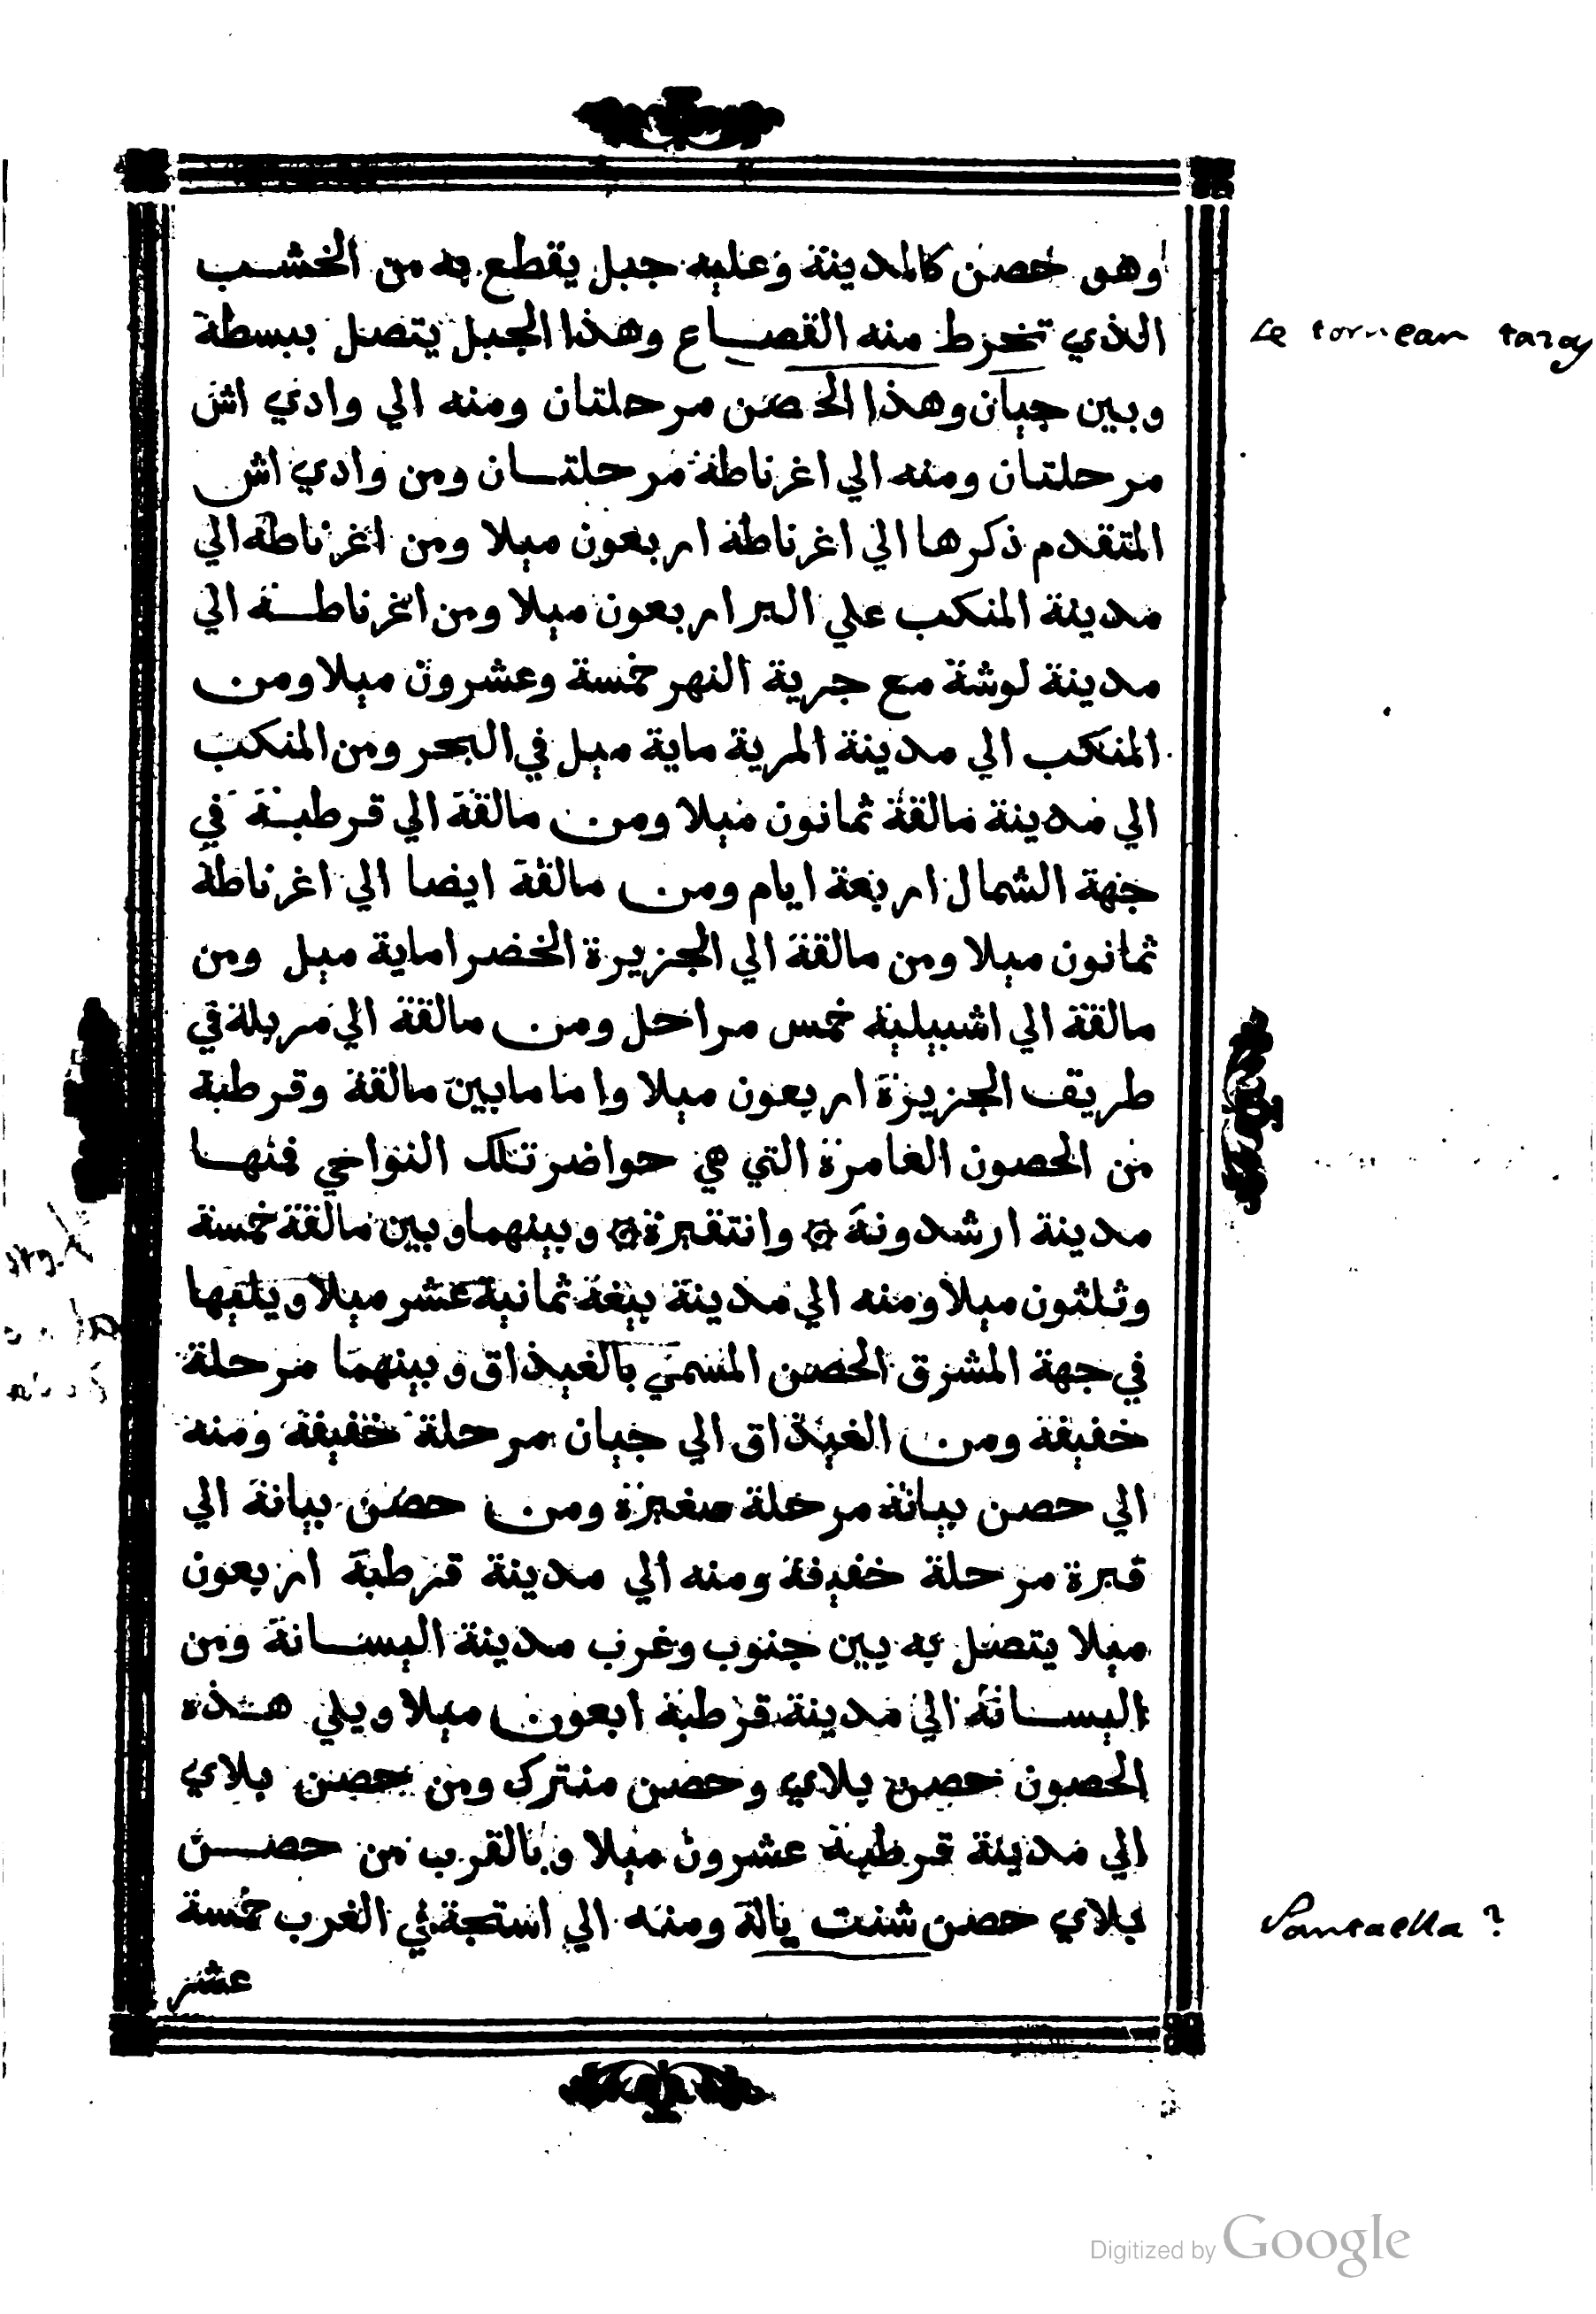 وهو حصن كالمدينة وعليه جبل يقطع به من الخشب
الذي تخرط منه القصاع وهذا الجبل يتصل ببسطة
Se tornean tazas
وبين جيان وهذا الحصن مرحلتان ومنه الي وادي اش
مرحلتان ومنه الي اغرناطة مرحلتان ومن وادي اش
المتقدم ذكرها الي اغرناطة اربعون ميلا ومن اغرناطة الي
مدينة المنكب علي البر اربعون ميلا ومن اغرناطة الي
مدينة لوشة مع جرية النهر خمسة وعشرون ميلا ومن
المنكب الي مدينة المرية ماية ميل في البحر ومن المنكب
الي مدينة مالقة ثمانون ميلا ومن مالقة الي قرطبة في
جهة الشمال اربعة ايام ومن مالقة ايضا الي اغرناطة
ثمانون ميلا ومن مالقة الي الجزيرة الخضرا ماية ميل ومن
مالقة الي اشبيلية خمس مراحل ومن مالقة الي مربلة في
طريق الجزيرة اربعون ميلا واما ما بين مالقة وقرطبة
من الحصون العامرة التي هي حواضر تلك النواحي فمنها
مدينة ارشدونة ۞ وانتقيرة ۞ وبينهما وبين مالقة خمسة
وثلثون ميلا ومنه الي مدينة بيغة ثمانية عشر ميلا ويليها
في جهة المشرق الحصن المسمي بالغيذاق وبينهما مرحلة
خفيفة ومن الغيذاق الي جيان مرحلة خفيفة ومنه
الي حصن بيانة مرحلة صغيرة ومن حصن بيانة الي
قبرة مرحلة خفيفة ومنه الي مدينة قرطبة اربعون
ميلا يتصل به بين جنوب وغرب مدينة اليسانة ومن
اليسانة الي مدينة قرطبة ابعون ميلا ويلي هذه
الحصون حصن بلاي وحصن منترك ومن حصن بلاي
الي مدينة قرطبة عشرون ميلا وبالقرب من حصن
بلاي حصن شنت يالة ومنه الي استجة في الغرب خمسة
Santaella ?
عشر
Digitized by Google